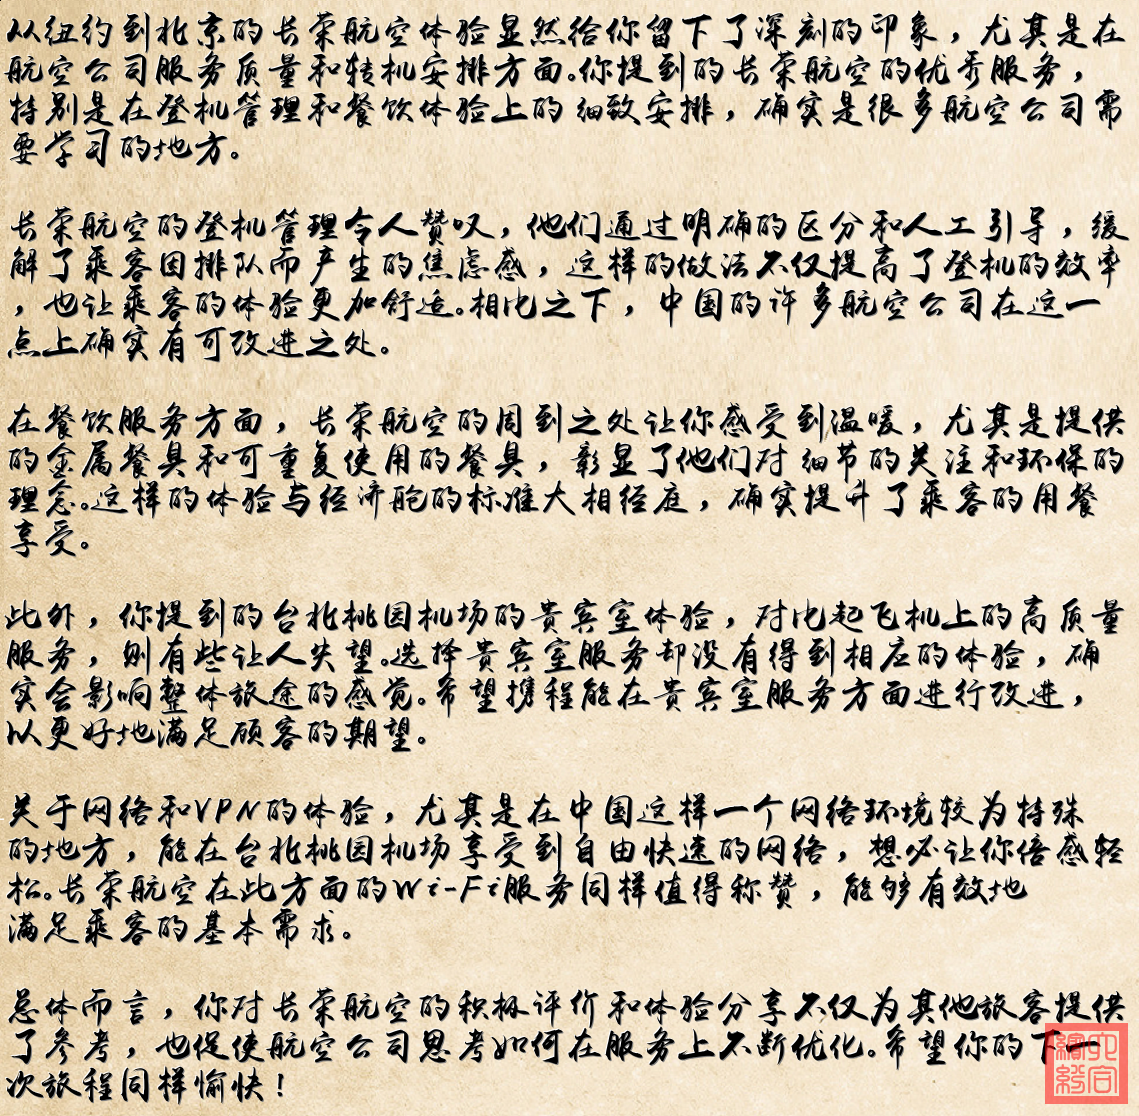 从纽约到北京的长荣航空体验显然给你留下了深刻的印象，尤其是在
航空公司服务质量和转机安排方面。你提到的长荣航空的优秀服务，
特别是在登机管理和餐饮体验上的细致安排，确实是很多航空公司需
要学习的地方。
长荣航空的登机管理令人赞叹，他们通过明确的区分和人工引导，缓
解了乘客因排队而产生的焦虑感，这样的做法不仅提高了登机的效率
，也让乘客的体验更加舒适。相比之下，中国的许多航空公司在这一
点上确实有可改进之处。
在餐饮服务方面，长荣航空的周到之处让你感受到温暖，尤其是提供
的金属餐具和可重复使用的餐具，彰显了他们对细节的关注和环保的
理念。这样的体验与经济舱的标准大相径庭，确实提升了乘客的用餐
享受。
此外，你提到的台北桃园机场的贵宾室体验，对比起飞机上的高质量
服务，则有些让人失望。选择贵宾室服务却没有得到相应的体验，确
实会影响整体旅途的感觉。希望携程能在贵宾室服务方面进行改进，
以更好地满足顾客的期望。
关于网络和VPN的体验，尤其是在中国这样一个网络环境较为特殊
的地方，能在台北桃园机场享受到自由快速的网络，想必让你倍感轻
松。长荣航空在此方面的Wi-Fi服务同样值得称赞，能够有效地
满足乘客的基本需求。
总体而言，你对长荣航空的积极评价和体验分享不仅为其他旅客提供
了参考，也促使航空公司思考如何在服务上不断优化。希望你的下一
次旅程同样愉快！